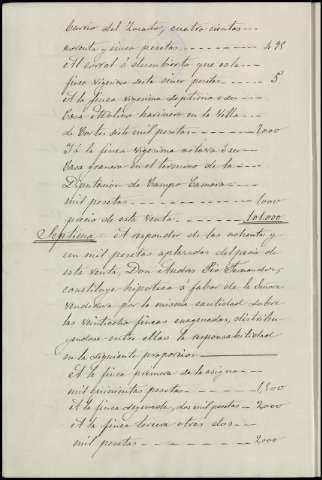 Barrio del Rosario, cuatrocientas
noventa y cinco pesetas 495
Al corral ó descubierto que es la
finca vigésima sesta cinco pesetas 5
A la finca vigésima séptima ó sea
Casa Molino harinero en la Villa
de Cortes siete mil pesetas 7000
Y á la finca vigésima octava ó sea
Casa
en el término de la
Diputación de Campo Camara
mil pesetas 1000
precio de esta venta 101.000
Septima: A responder de las ochenta y
un mil pesetas aplazadas del precio de
esta venta, Don Andres Pio Fernandez,
constituye hipoteca á favor de la Señora
vendedora por la misma cantidad sobre
las veintiocho fincas enagenadas, distribu-
yendose entre ellas la responsabilidad
en la siguiente proporcion
A la finca primera se la asigna
mil quinientas pesetas 1,500
A la finca segunda, dos mil pesetas 2000
A la finca tercera otras dos
mil pesetas 2000